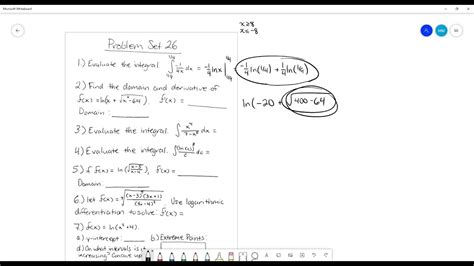 Microsoft Whiteboard
x≥8
x≤-8
Problem Set 26
1.) Evaluate the integral. ∫ -1/4x dx = -1/4 lnx | -1/4 ln(1/4) + 1/4 ln(1/9)
2.) Find the domain and derivative of
f(x)=ln(x+√x²-64). f'(x)=
Domain:
ln(-20 + √400-64
3.) Evaluate the integral. dx =
4.) Evaluate the integral. dx =
5.) If f(x) = ln(√ ), f'(x)=
Domain
6.) Let f(x) = Use logarithmic
differentiation to solve. f'(x) =
7.) f(x) = ln(x²+4).
a) y-intercept: b) Extreme Points:
d) On what intervals is
increasing? Concave up